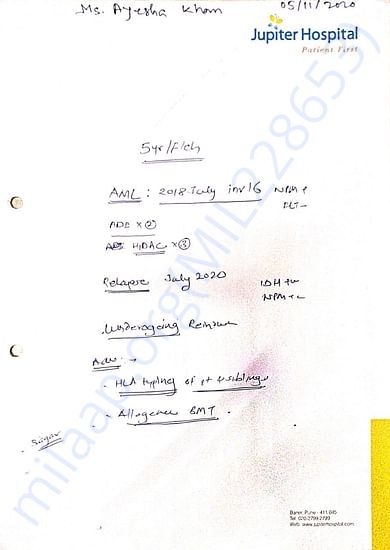 Ms. Ayesha Khan
05/11/2020
Jupiter Hospital
Patient First
5yr/F/ch
AML : 2018 July inv16 NPM+
FLT-
ADE × ②
HIDAC × ③
Relapse July 2020
IDH +ve
NPM+c
Undergoing
Adv. →
- HLA typing of pt & siblings
- Allogenic BMT.
Baner, Pune - 411 045
Tel: 020-2799 2799
Web: www.jupiterhospital.com
milaap.org(MIL228653)